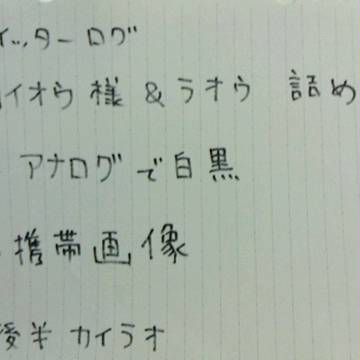 イッターログ
イオウ様 & ラオウ 詰め
アナログで白黒
携帯画像
後半 カイラオ